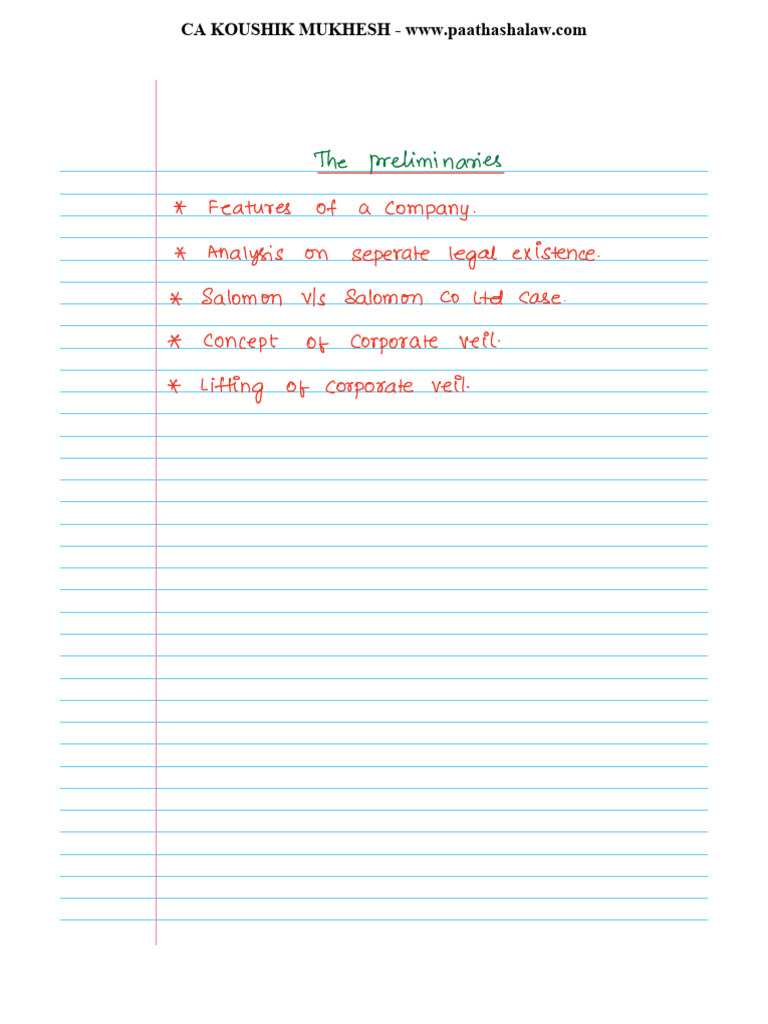 CA KOUSHIK MUKHESH - www.paathashalaw.com
The preliminaries
* Features of a company.
* Analysis on seperate legal existence.
* Salomon v/s Salomon Co Ltd case.
* Concept of corporate veil.
* Lifting of corporate veil.